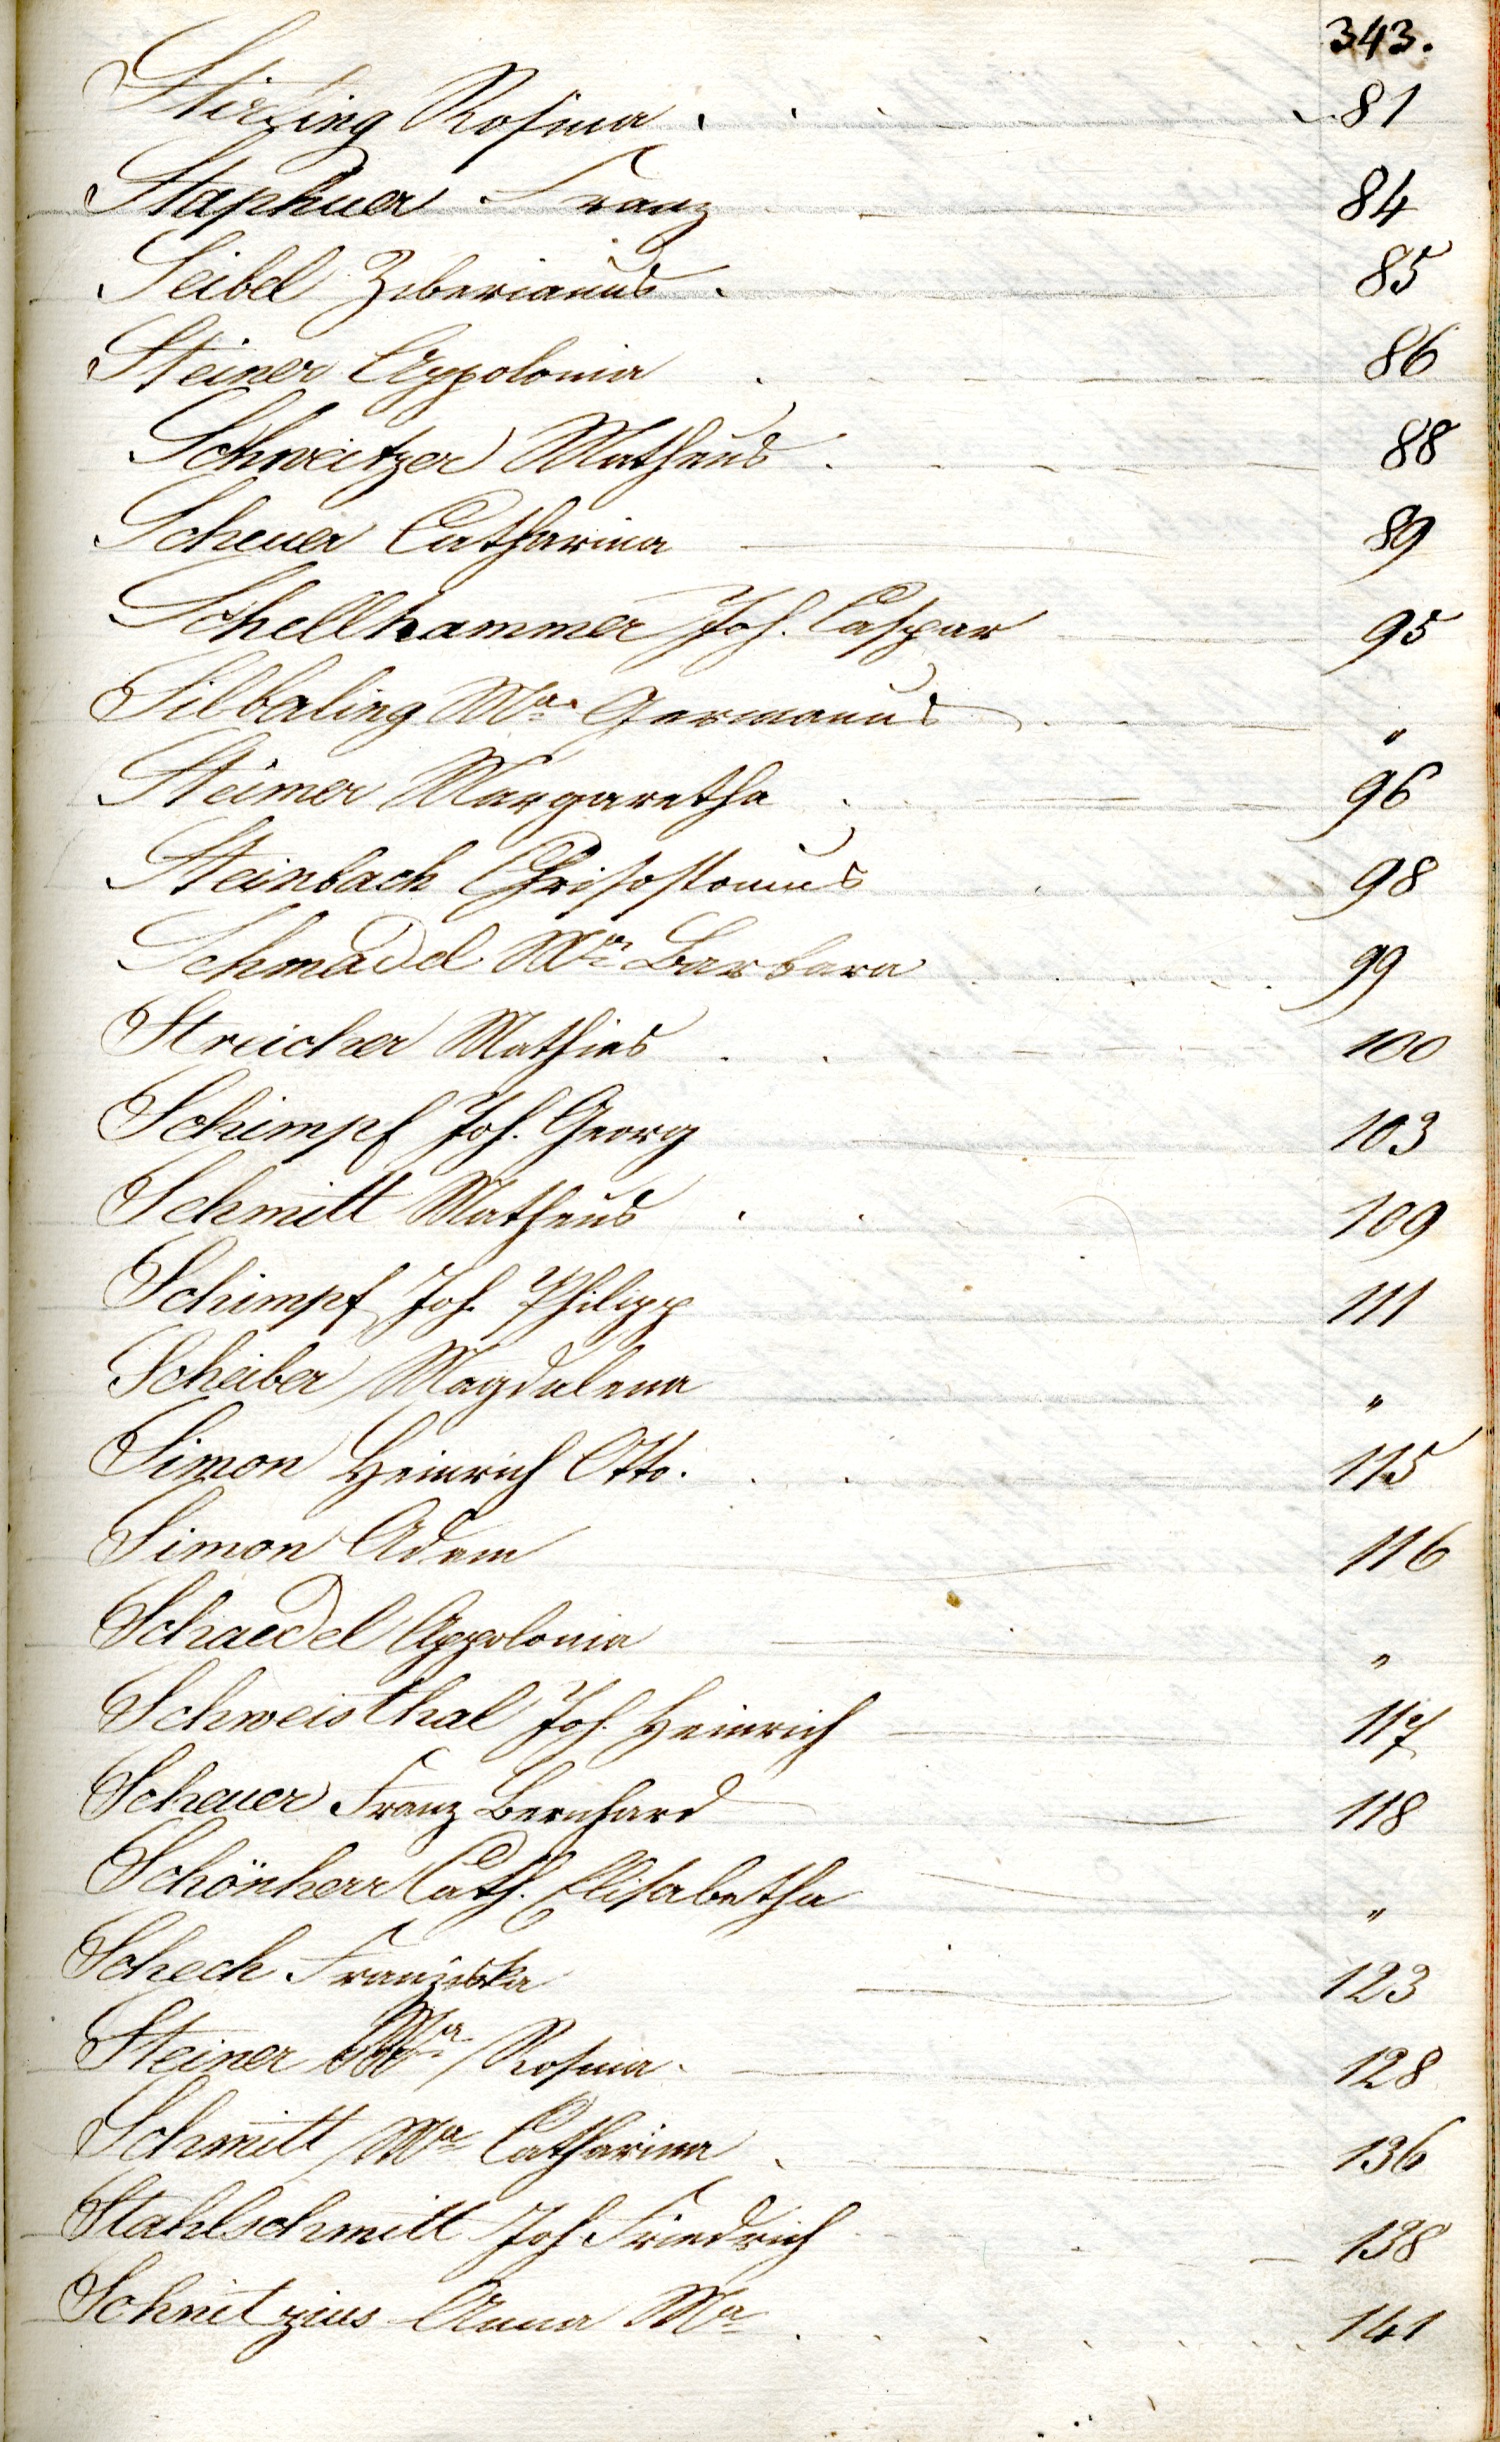 343.
Stirzing Rosina . . . 81
Staphuer Franz 84
Seibel Ziberianus . 85
Steiner Appolonia . 86
Schweitzer Matheus . 88
Scheuer Catharina 89
Schellhammer Joh. Caspar 95
Silberling Ma. Germanus "
Steimer Margaretha . 96
Steinbach Chrisostomus . 98
Schmädel Ma Barbara 99
Streicher Mathies . . 100
Schimpf Joh. Georg 103
Schmitt Matheus . . 109
Schimpf Joh. Philipp 111
Scheiber Magdalena "
Simon Heinrich Otto. 115
Simon Adam 116
Schaedel Appolonia "
Schweisthal Joh. Heinrich 117
Scheuer Franz Bernhard 118
Schönherr Cath. Elisabetha "
Schech Franziska 123
Steiner Ma Rosina . 128
Schmitt Ma Catharina . 136
Stahlschmitt Joh Friedrich 138
Schnitzius Anna Ma . 141